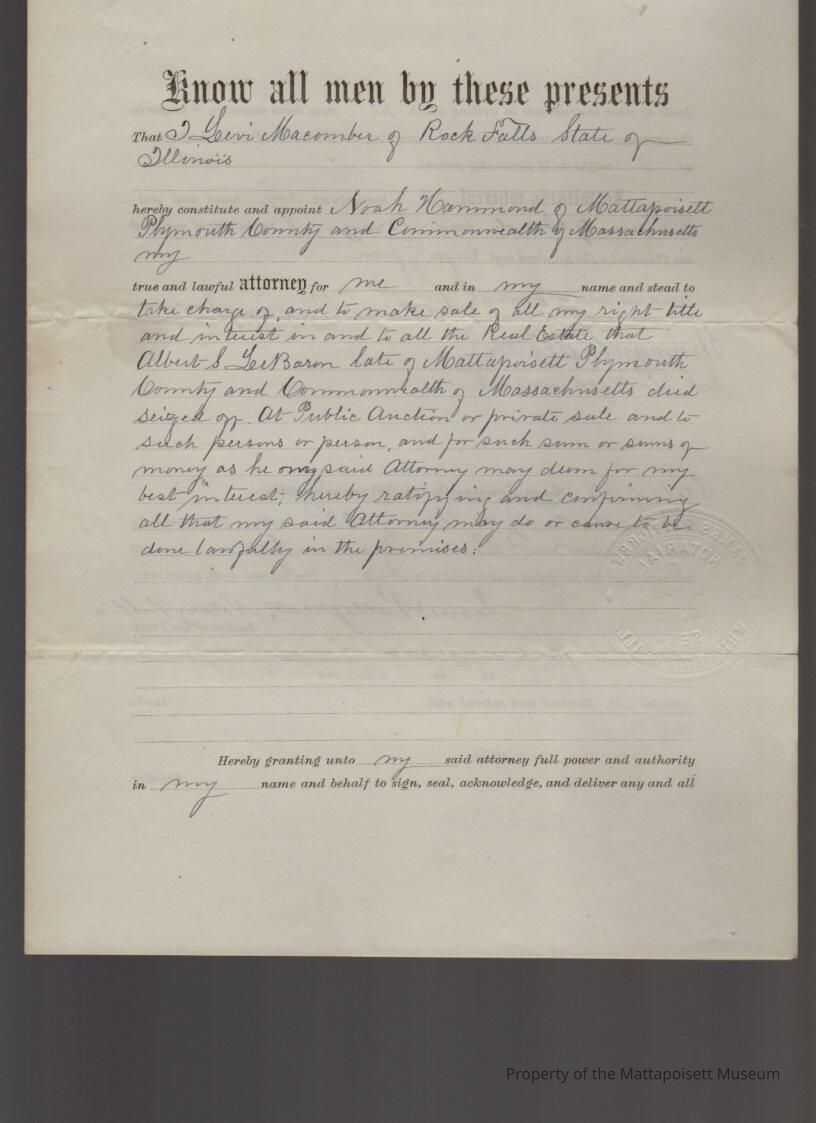 Know all men by these presents
That I Levi Macomber of Rock Falls State of
Illinois
hereby constitute and appoint Noah Hammond of Mattapoisett
Plymouth County and Commonwealth of Massachusetts
my
true and lawful attorney for me and in my name and stead to
take charge of, and to make sale of all my right title
and interest in and to all the Real Estate that
Albert S LeBaron late of Mattapoisett Plymouth
County and Commonwealth of Massachusetts died
seized off. At Public Auction or private sale and to
such persons or person, and for such sum or sums of
money as he my said Attorney may deem for my
best interest, hereby ratifying and confirming
all that my said Attorney may do or cause to be
done lawfully in the premises:
Hereby granting unto my said attorney full power and authority
in my name and behalf to sign, seal, acknowledge, and deliver any and all
Property of the Mattapoisett Museum